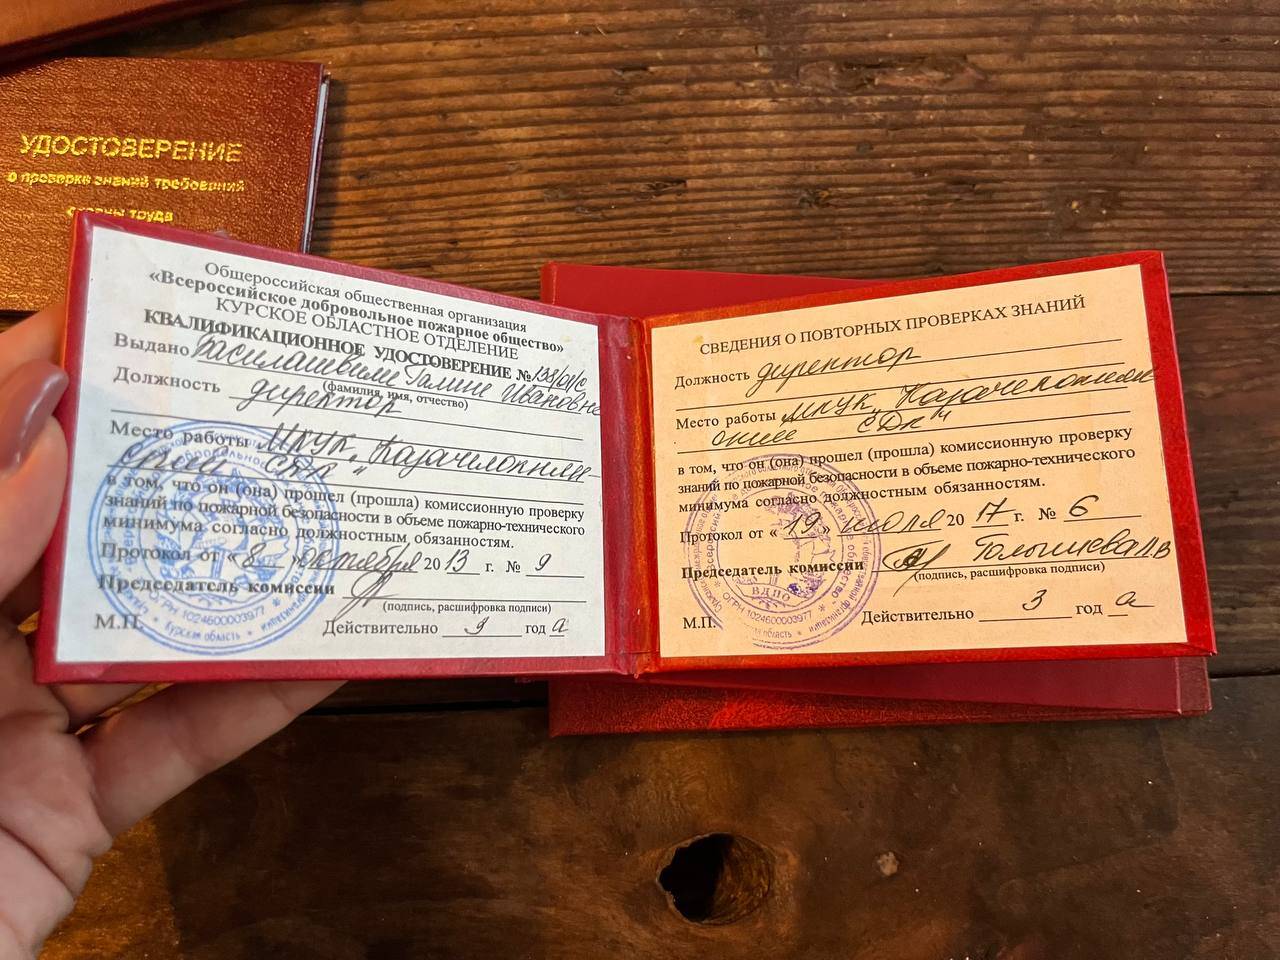 УДОСТОВЕРЕНИЕ
о проверке знаний требований
охраны труда
Общероссийская общественная организация
«Всероссийское добровольное пожарное общество»
КУРСКОЕ ОБЛАСТНОЕ ОТДЕЛЕНИЕ
КВАЛИФИКАЦИОННОЕ УДОСТОВЕРЕНИЕ №
Выдано Василашвили Галине Ивановне
(фамилия, имя, отчество)
Должность директор
Место работы МКУК „Казачелокнян-
ский СДК"
в том, что он (она) прошел (прошла) комиссионную проверку
знаний по пожарной безопасности в объеме пожарно-технического
минимума согласно должностным обязанностям.
Протокол от « 8 » октября 20 13 г. № 9
Председатель комиссии
(подпись, расшифровка подписи)
М.П. Действительно год а
ОГРН 1024600003977
Курская область
СВЕДЕНИЯ О ПОВТОРНЫХ ПРОВЕРКАХ ЗНАНИЙ
Должность директор
Место работы МКУК „Казачелокнян-
ский СДК"
в том, что он (она) прошел (прошла) комиссионную проверку
знаний по пожарной безопасности в объеме пожарно-технического
минимума согласно должностным обязанностям.
Протокол от « 19 » июля 20 17 г. № 6
Председатель комиссии
(подпись, расшифровка подписи)
М.П. Действительно 3 год а
ВДПО
ОГРН 1024600003977